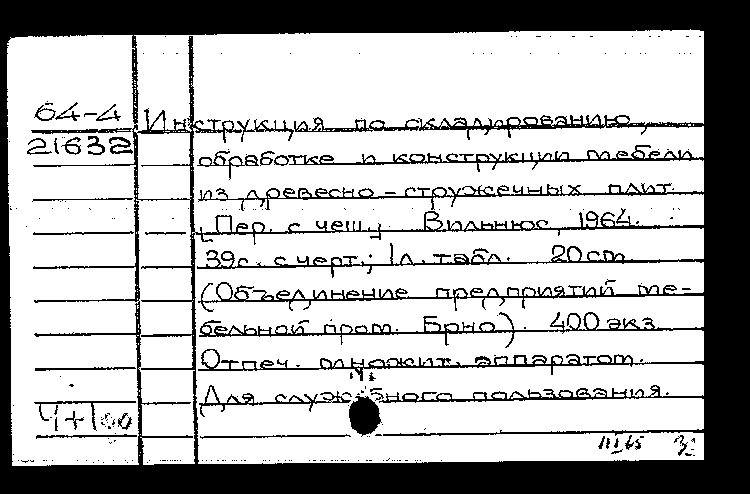 64-4 Инструкция по складированию,
21632 обработке и конструкции мебели
из древесно-стружечных плит.
[Пер. с чеш.] Вильнюс, 1964.
39с. с черт.; 1л. табл. 20cm
(Объединение предприятий ме-
бельной пром. Брно). 400 экз.
Отпеч. множит. аппаратом.
Для служебного пользования.
Ч+1
III 65